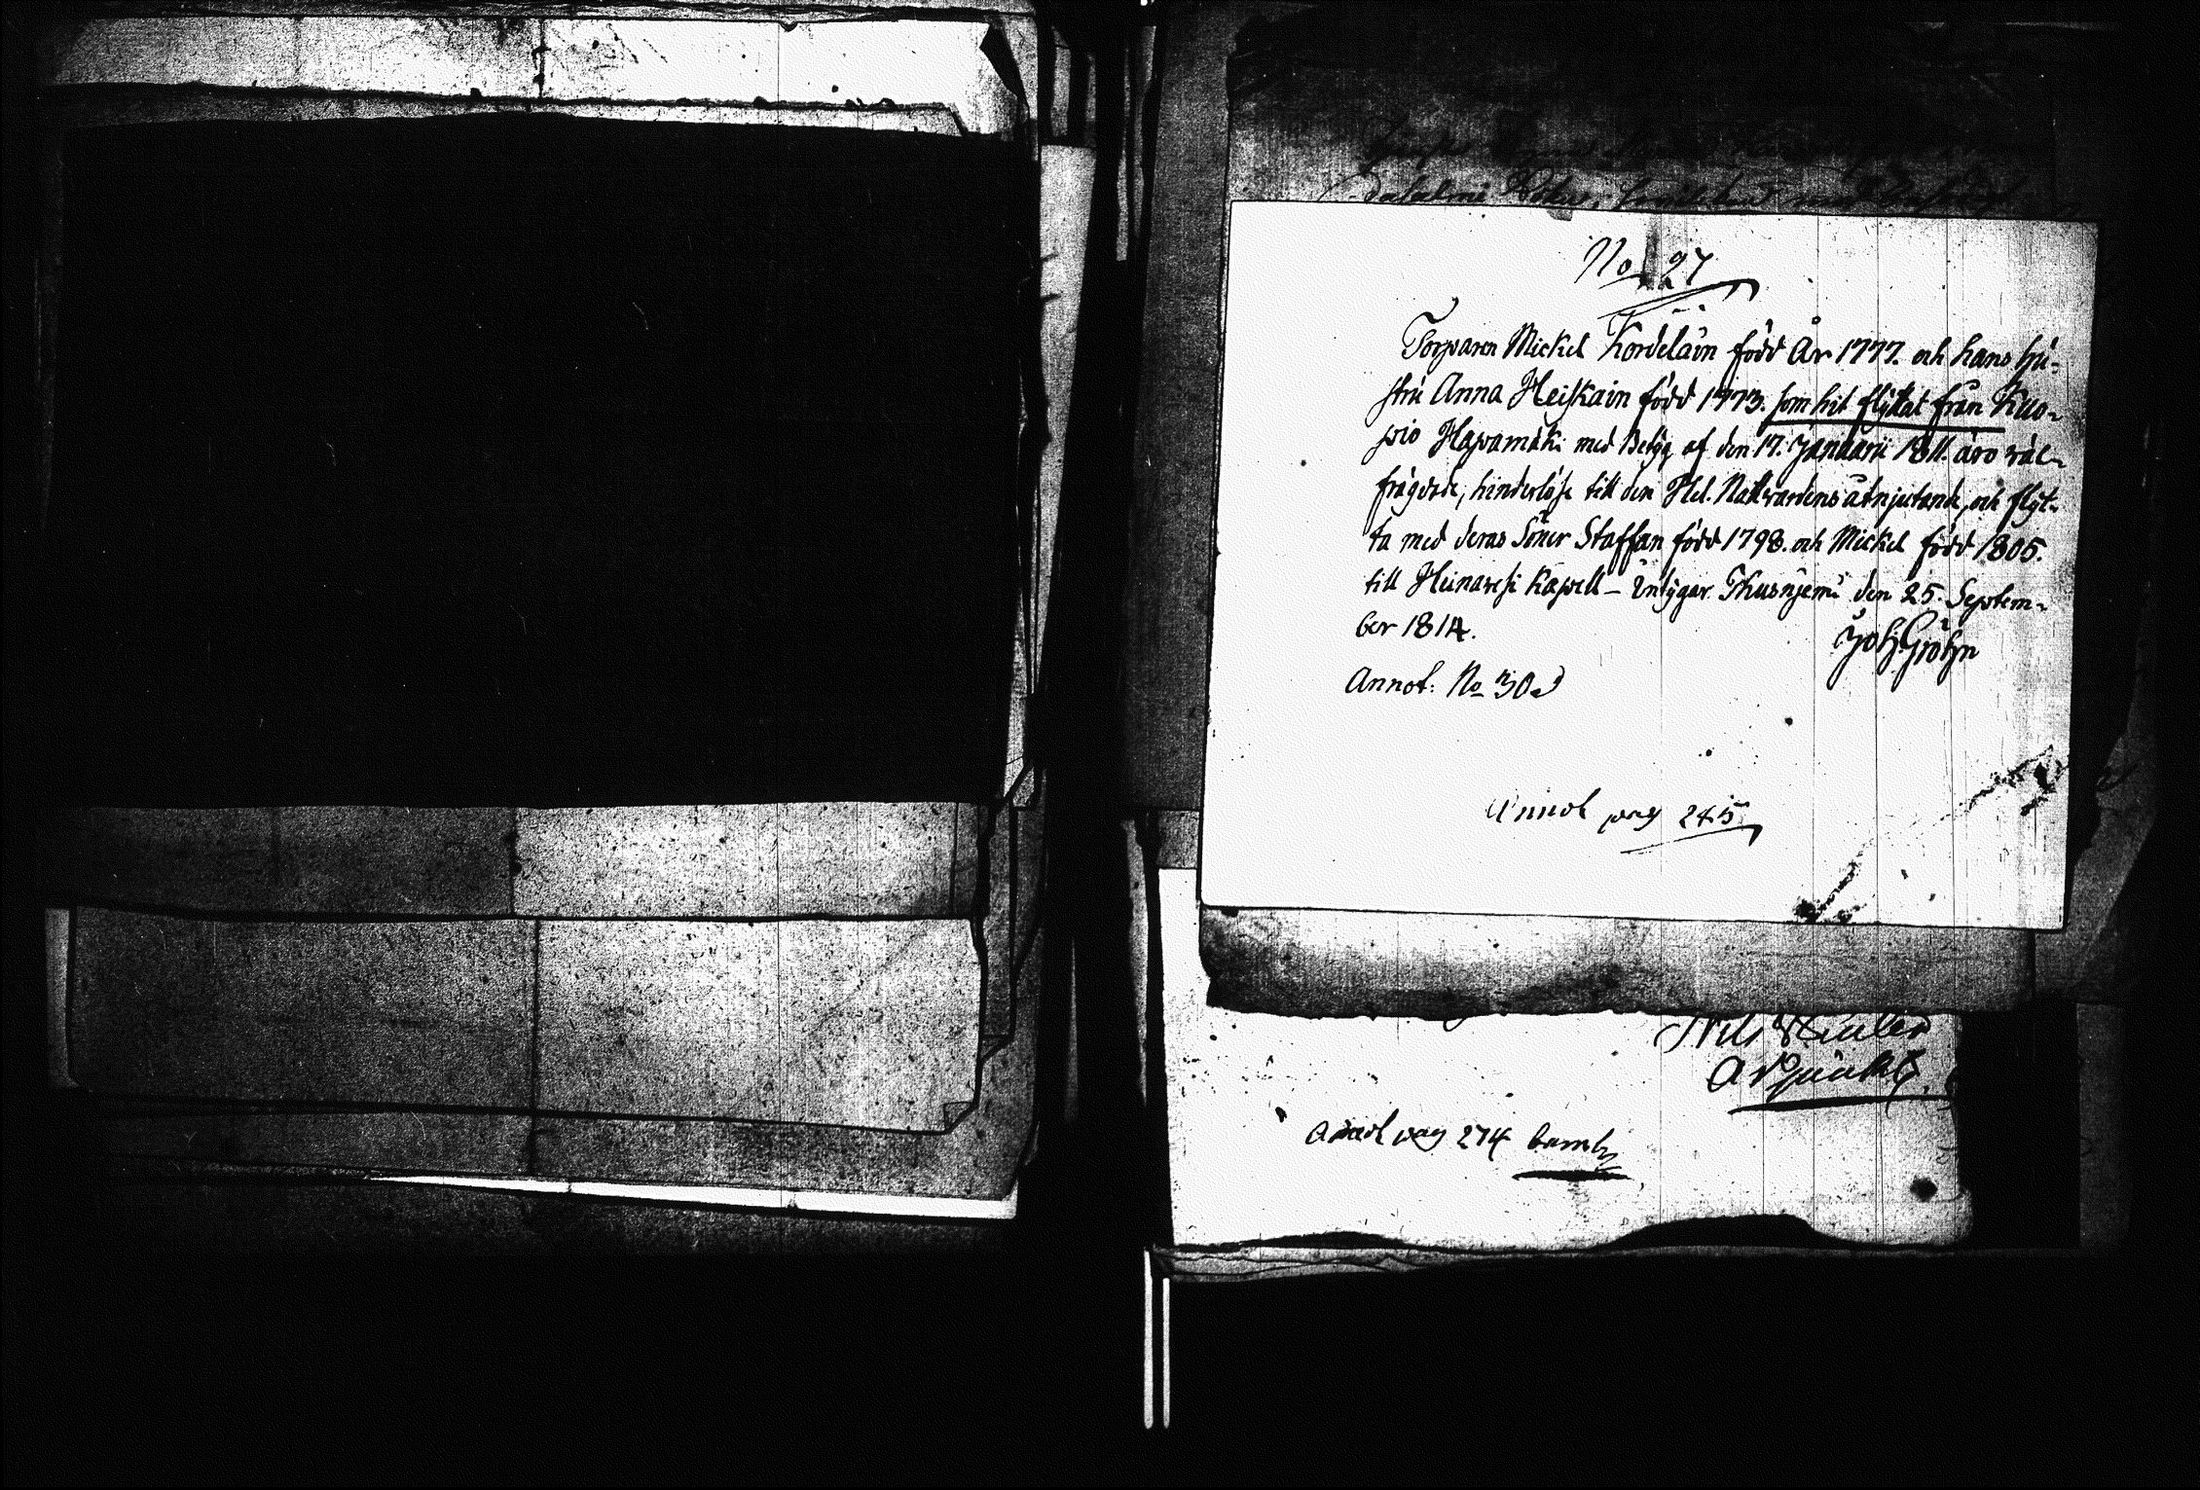 No 27
Torparen Mickel Kordelain född År 1777. och hans hu-
stru Anna Heiskain född 1773. som hit flyttat från Kuo-
pio Hapamäki med Betyg af den 17. Januarii 1811. äro väl-
frägdade, hinderlöse till den Hel. Nattvardens åtnjutande, och flyt-
ta med deras Söner Staffan född 1798. och Mickel född 1805.
till Heinavesi Kapell – Intygar Thusniemi den 25. Septem-
ber 1814.
Joh. Gröhn
Annot: No 30
Annot pag 245
Nils
Adjunkt
Annot pag 274